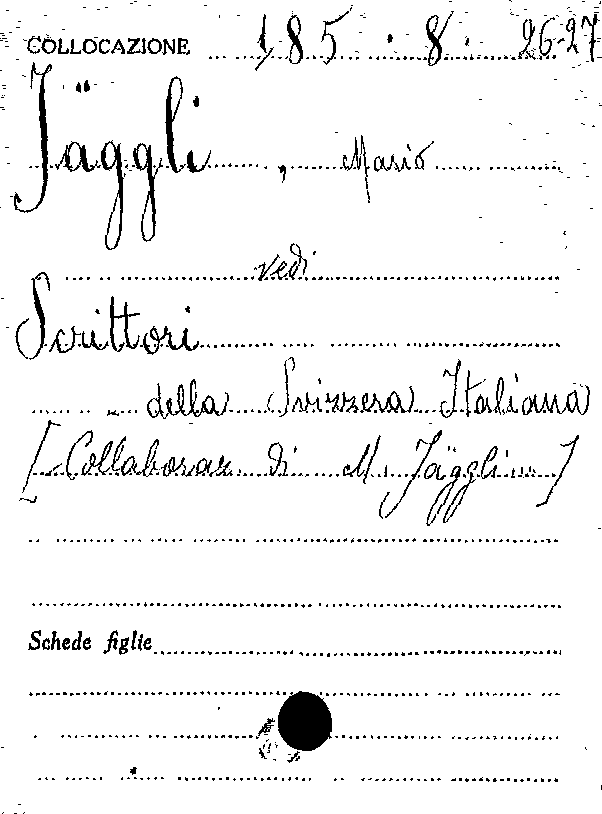 COLLOCAZIONE 185 . 8 . 26-27
Jäggli, Mario
vedi
Scrittori
della Svizzera Italiana
[Collaboraz. di M. Jäggli...]
Schede figlie